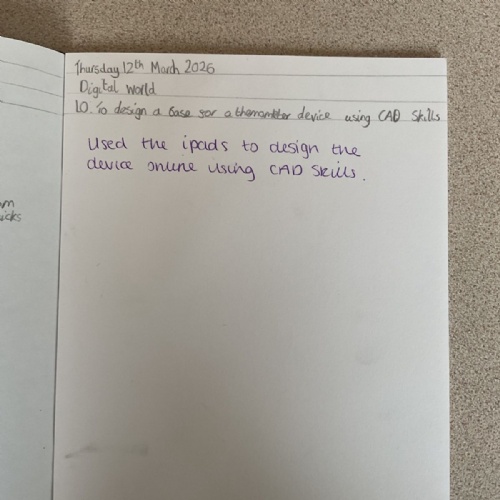 Thursday 12th March 2026
Digital World
LO. To design a base for a thermometer device using CAD Skills
Used the ipads to design the
device online using CAD skills.